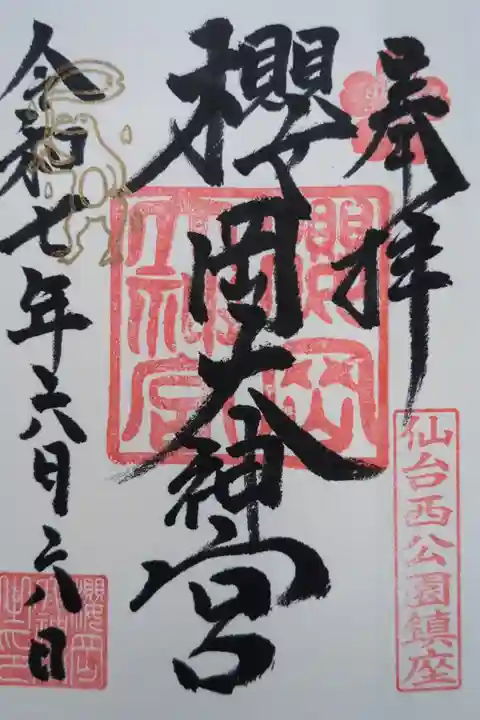 奉拝
仙台西公園鎮座
櫻岡大神宮
櫻岡
大神宮
令和七年六月二八日
櫻岡